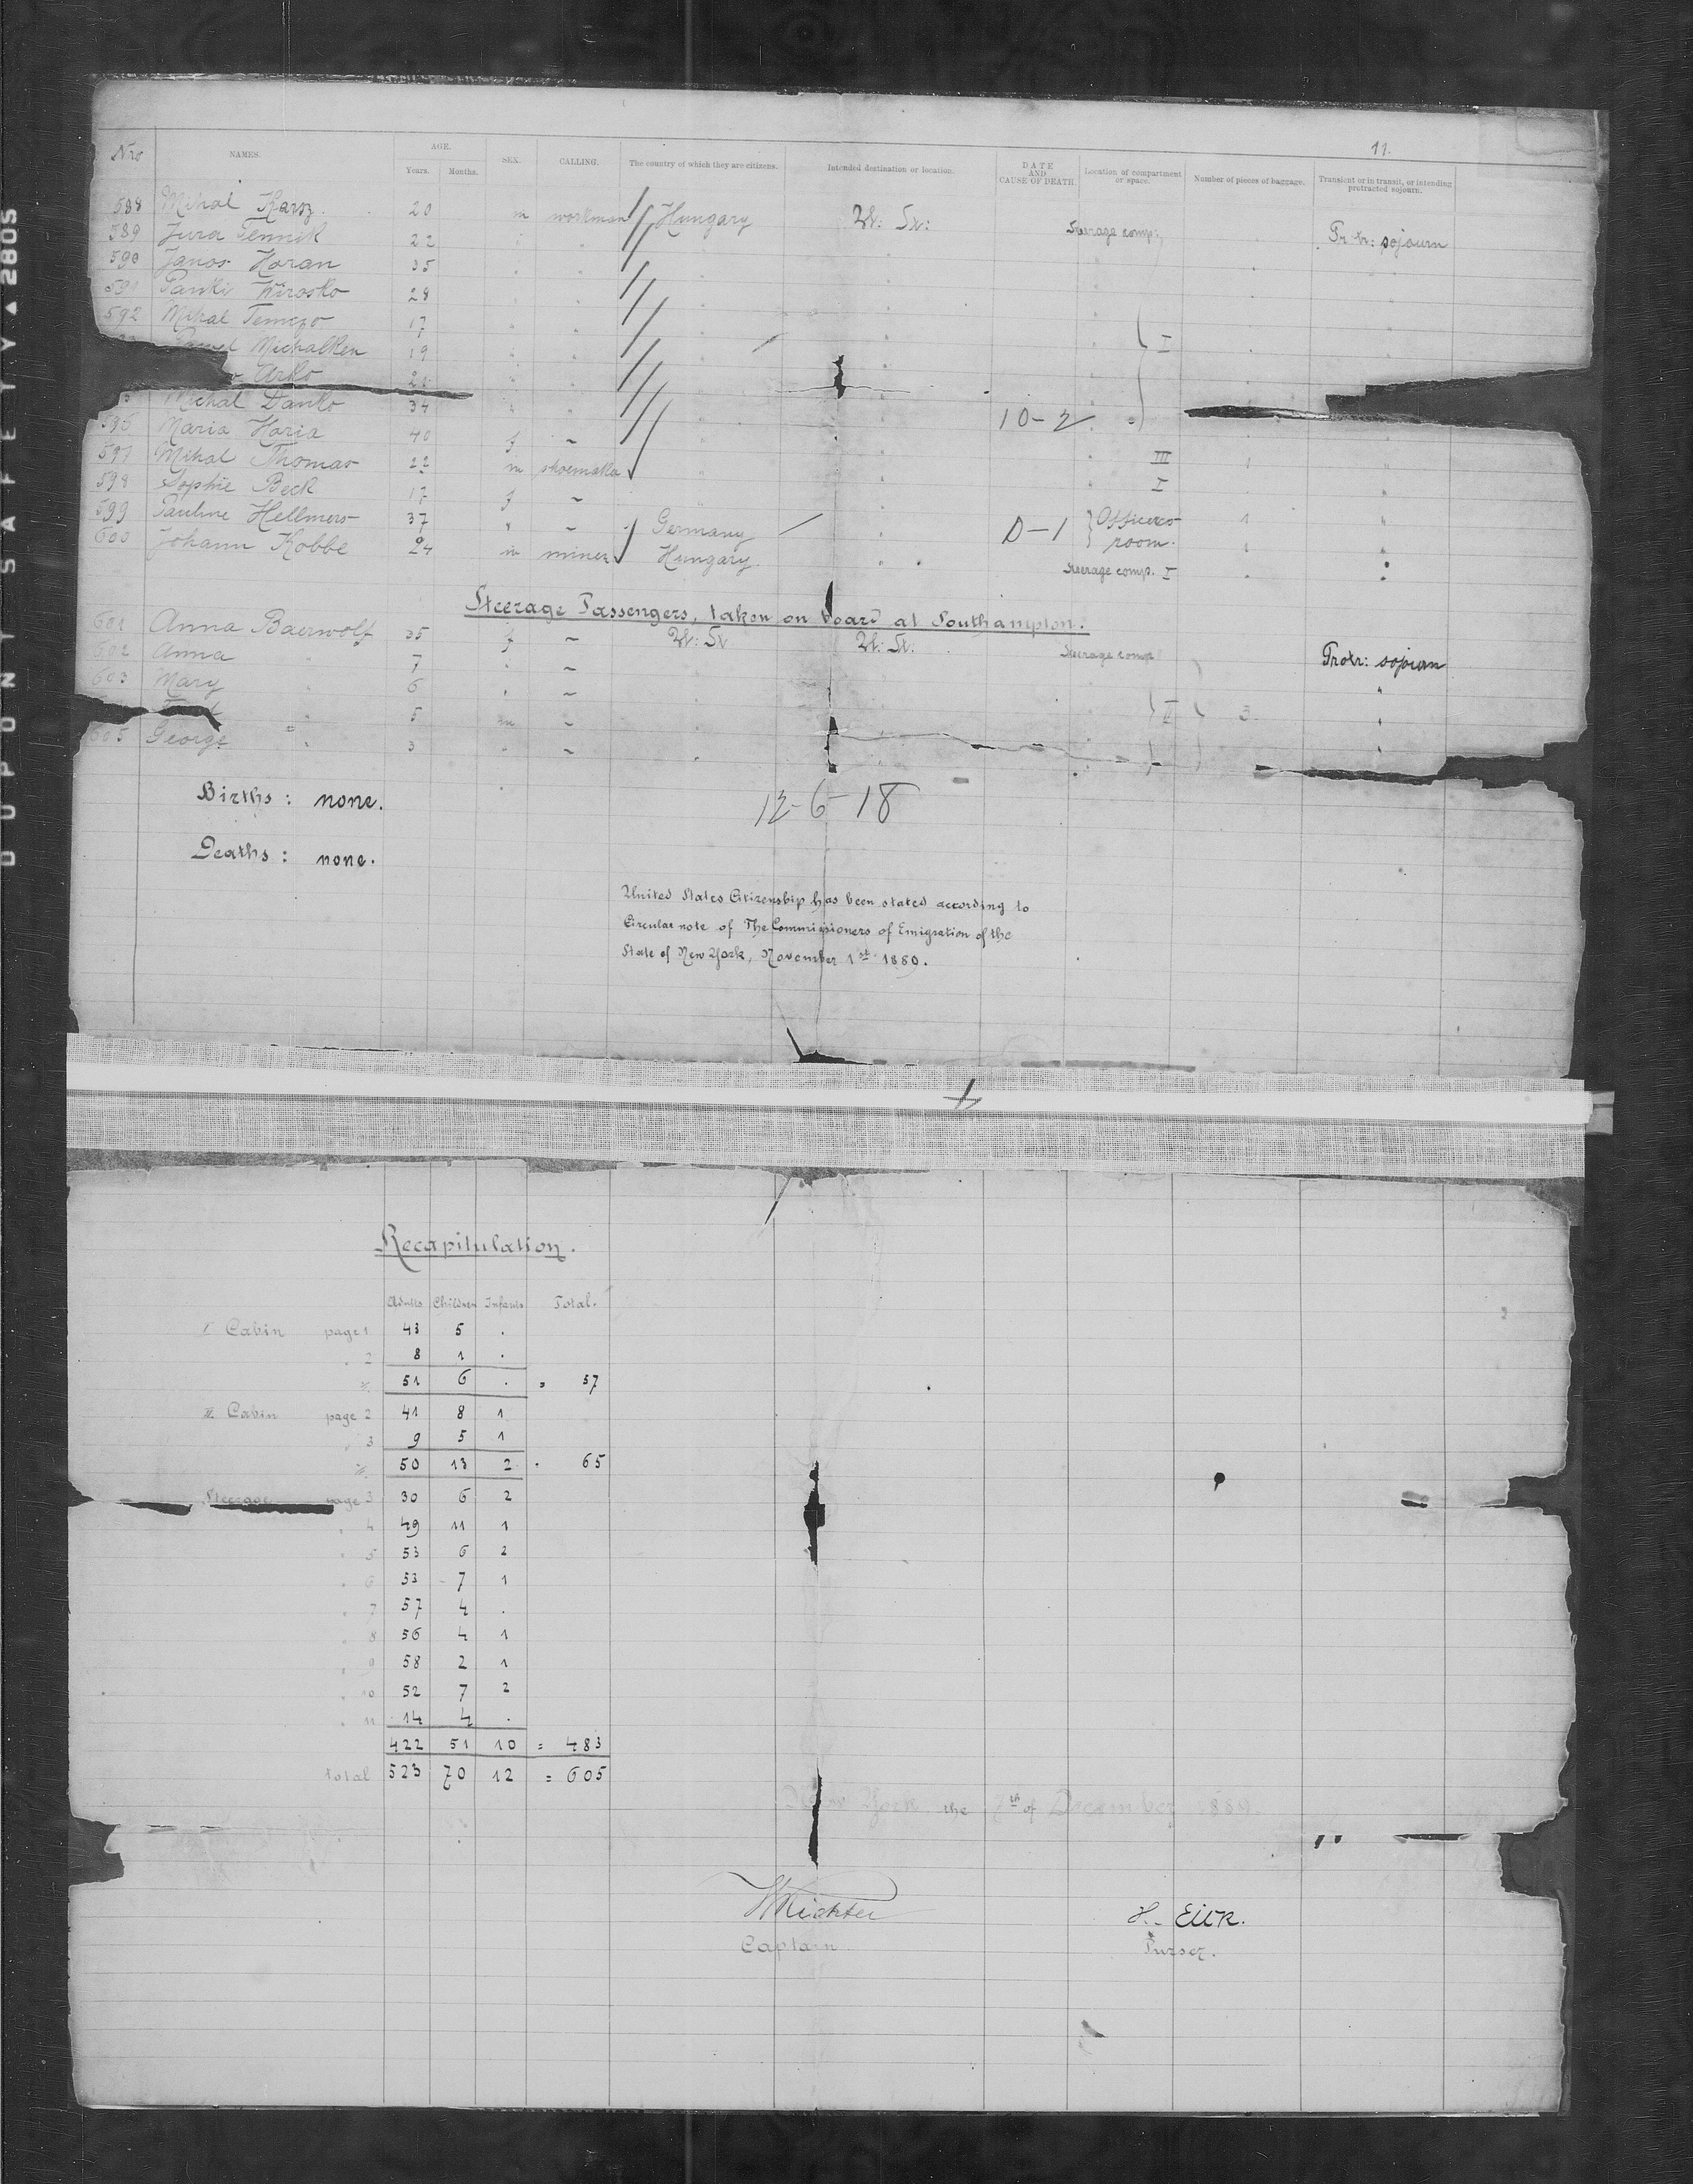 DUPONT SAFETY ▲ 2805
11.
Nro NAMES. AGE. Years. Months. SEX. CALLING. The country of which they are citizens. Intended destination or location. DATE AND CAUSE OF DEATH. Location of compartment or space. Number of pieces of baggage. Transient or in transit, or intending protracted sojourn.
588 Mihal 20 m workman Hungary U: St: Steerage comp: Pr tr: sojourn
589 Jura 22 "
590 Janos Horan 35 " "
591 28 " "
592 Mihal 17 " "
Michalken 19 " " I
Arko
Michal Danko 34 " "
596 Maria Horia 40 f ~ 10-2
597 Mihal Thomas 22 m shoemaker III 1
598 Sophie Beck 17 f ~ I
599 Pauline Hellmers 37 " ~ Germany D-1 Officers room. 1
600 Johann Kobbe 24 m miner Hungary " Steerage comp. I
Steerage Passengers, taken on board at Southampton.
601 Anna Baerwolf 35 f ~ U: St U: St: Steerage comp Protr: sojourn
602 Anna " 7 " ~
603 Mary " 6 " ~
" 5 m ~ II 3
605 George " 3 " ~
Births: none.
12-6-18
Deaths: none.
United States Citizenship has been stated according to
Circular note of The Commissioners of Emigration of the
State of New York, November 1st 1889.
Recapitulation.
Adults Children Infants Total.
I Cabin page 1 43 5 .
" 2 8 1 .
51 6 . = 57
II. Cabin page 2 41 8 1
" 3 9 5 1
50 13 2 . 65
Steerage page 3 30 6 2
" 4 49 11 1
" 5 53 6 2
" 6 53 7 1
" 7 57 4 .
" 8 56 4 1
" 9 58 2 1
" 10 52 7 2
" 11 14 4 .
422 51 10 = 483
total 523 70 12 = 605
New York the 7th of December 1889.
WRichter H. Eick.
Captain Purser.